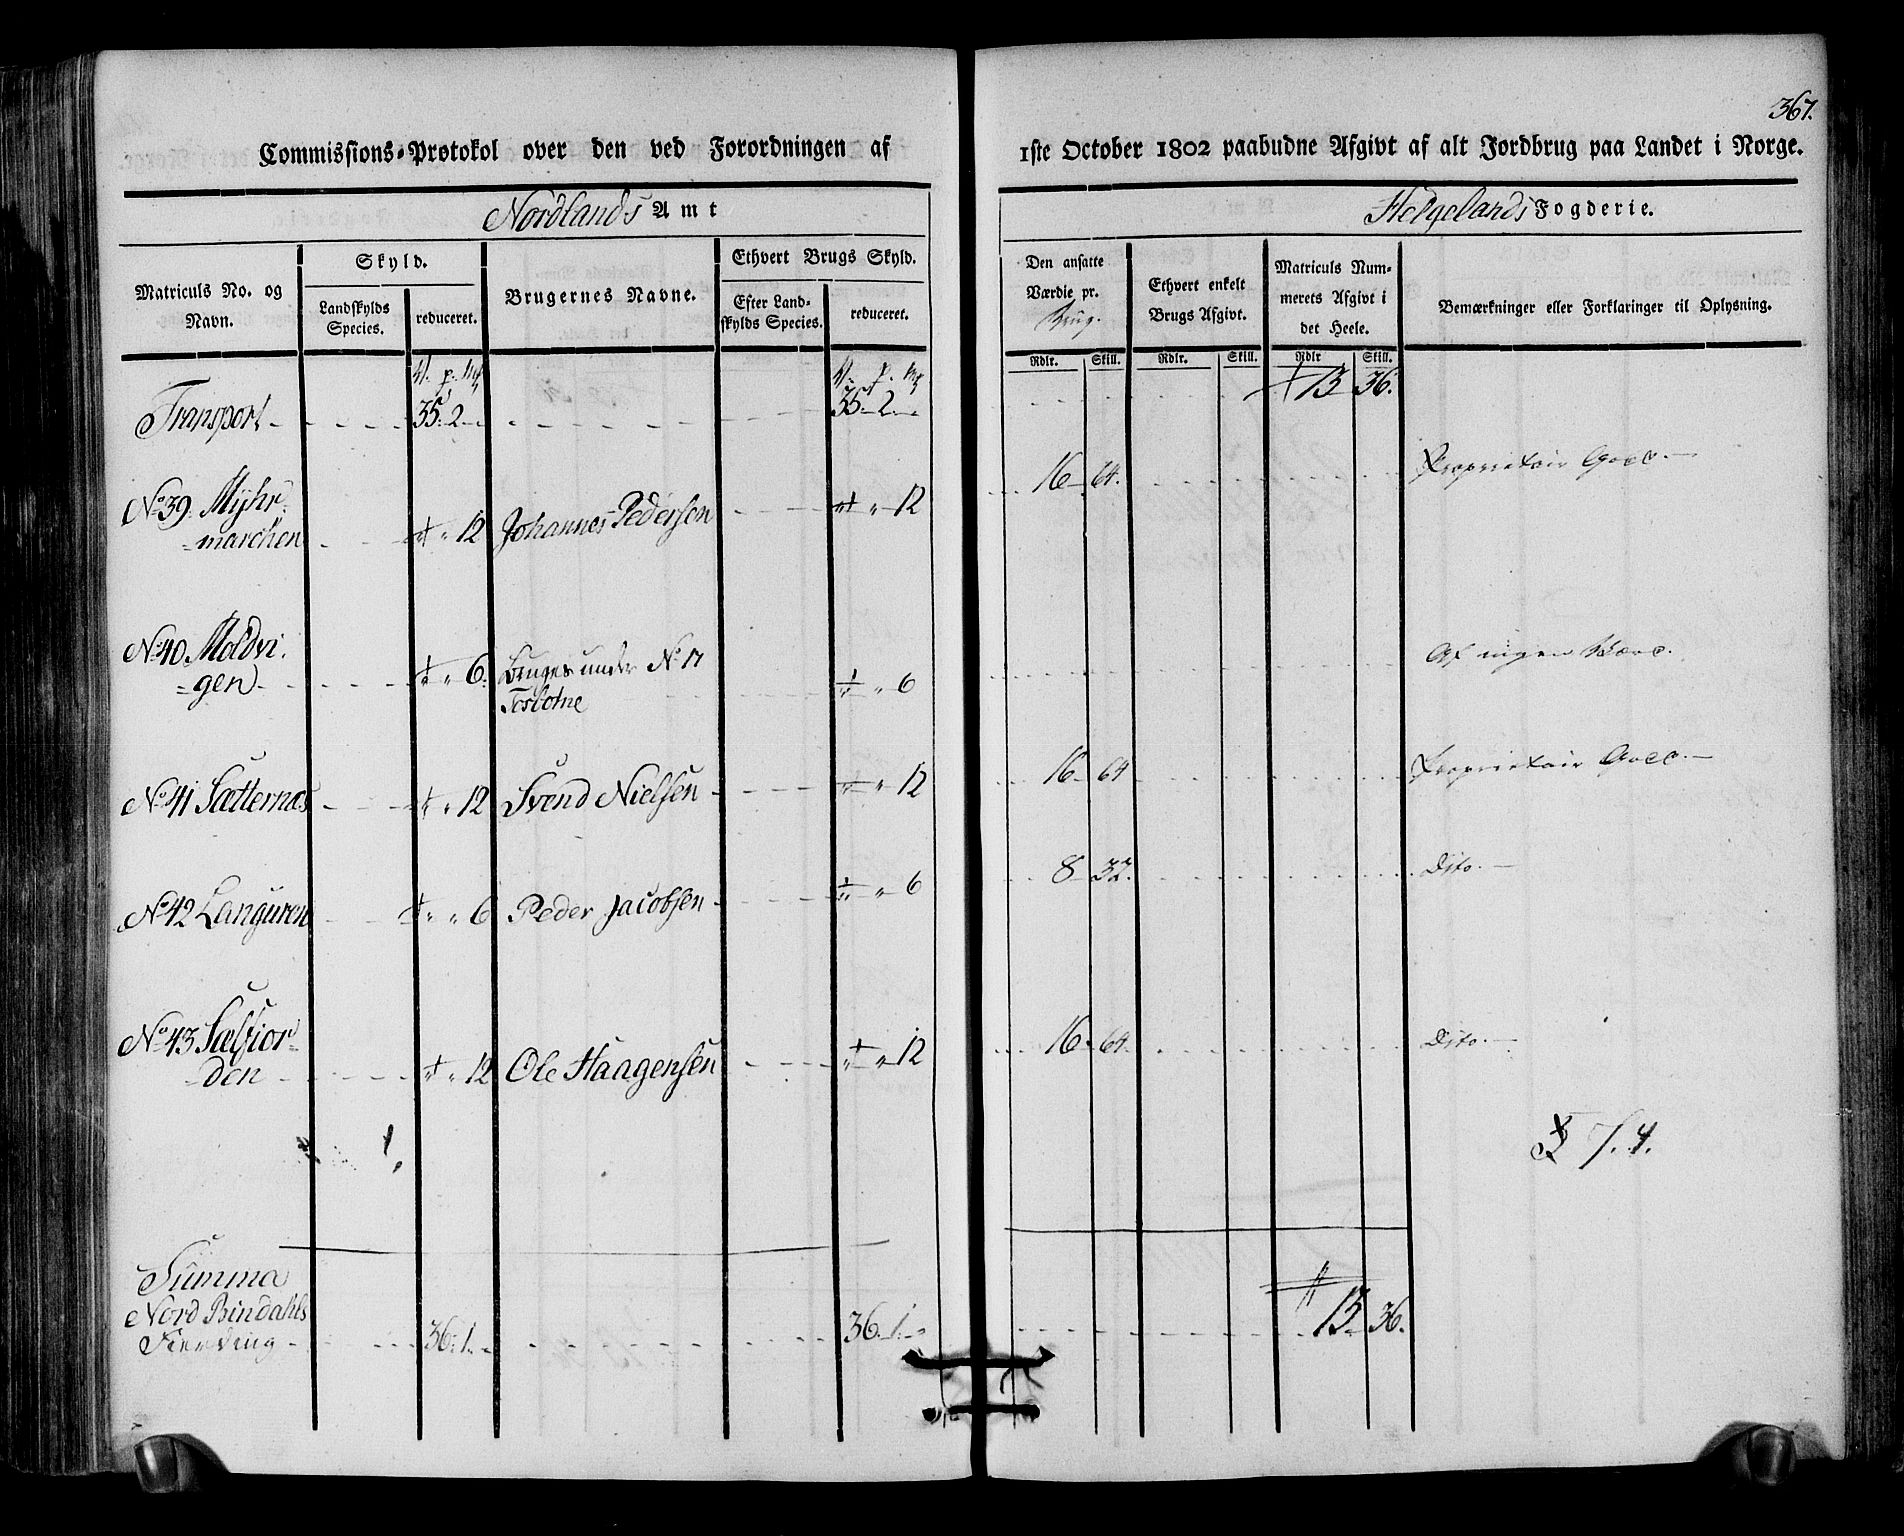 367.
Commissions-Protokol over den ved Forordningen af 1ste October 1802 paabudne Afgivt af alt Jordbrug paa Landet i Norge.
Nordlands Amt Helgelands Fogderie.
Matriculs No. og Navn.
Skyld.
Landskylds Species.
reduceret.
Brugernes Navne.
Ethvert Brugs Skyld.
Efter Landskylds Species.
reduceret.
Den ansatte Værdie pr. Brug.
Ethvert enkelt Brugs Afgivt.
Matriculs Nummerets Afgivt i det Heele.
Bemærkninger eller Forklaringer til Oplysning.
Rdlr. Skill. Rdlr. Skill. Rdlr Skill.
Transport 35. 2 35. 2 13 36.
No 39 Myhr-
marchen 12 Johannes Pedersen 12 16 64. Proprietair
No 40 Moldvi-
gen 6. Bruges under No 17 6 Af ingen
Tosbotne
No 41 Sætternæs 12 Svend Nielsen 12 16 64 Proprietair
No 42 Languren 6 Peder Jacobsen 6 8 32. Dito.
No 43 Sælfior-
den 12 Ole Haagensen 12 16 64. Dito.
7. 4.
Summa
Nord Bindahls
Fierding 36. 1. 36. 1. 13 36.